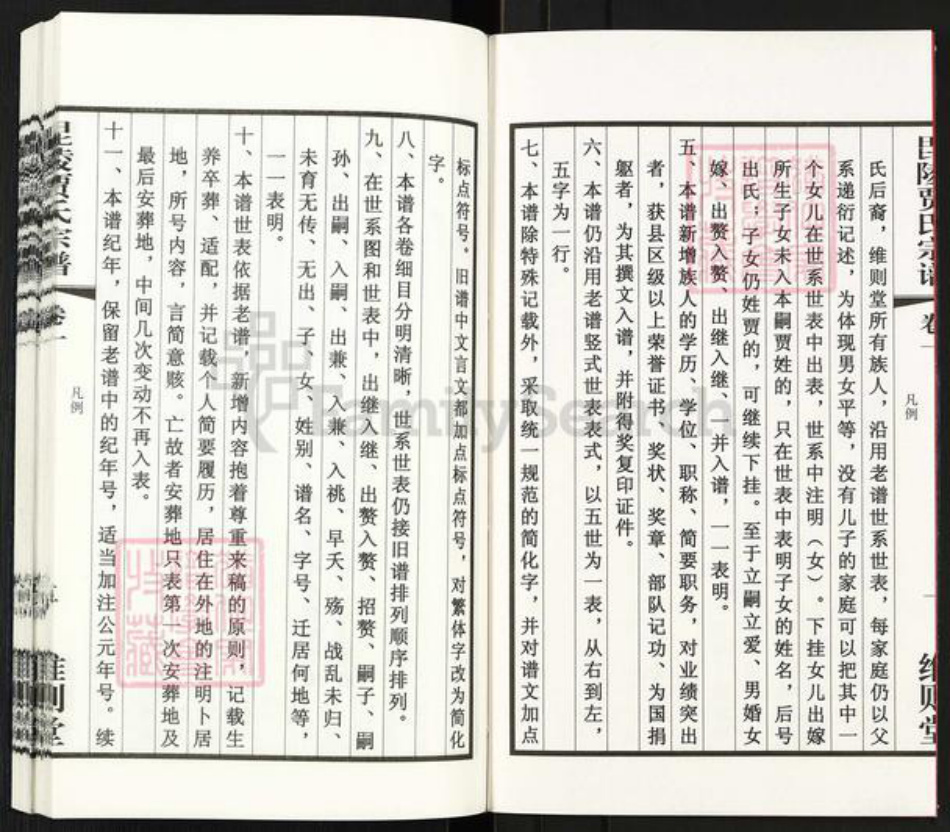 毗陵贾氏宗谱
卷一
凡例
一
维则堂
氏后裔，维则堂所有族人，沿用老谱世系世表，每家庭仍以父
系递衍记述，为体现男女平等，没有儿子的家庭可以把其中一
个女儿在世系世表中出表，世系中注明（女）。下挂女儿出嫁
所生子女未入本嗣贾姓的，只在世表中表明子女的姓名，后号
出氏；子女仍姓贾的，可继续下挂。至于立嗣立爱、男婚女
嫁、出赘入赘、出继入继、并入谱，一一表明。
五、本谱新增族人的学历、学位、职称、简要职务，对业绩突出
者，获县区级以上荣誉证书、奖状、奖章、部队记功、为国捐
躯者，为其撰文入谱，并附得奖复印证件。
六、本谱仍沿用老谱竖式世表表式，以五世为一表，从右到左，
五字为一行。
七、本谱除特殊记载外，采取统一规范的简化字，并对谱文加点
标点符号。旧谱中文言文都加点标点符号，对繁体字改为简化
字。
八、本谱各卷细目分明清晰，世系世表仍接旧谱排列顺序排列。
九、在世系图和世表中，出继入继、出赘入赘、招赘、嗣子、嗣
孙、出嗣、入嗣、出兼、入兼、入桃、早夭、殇、战乱未归、
未育无传、无出、子、女、姓别、谱名、字号、迁居何地等，
一一表明。
十、本谱世表依据老谱，新增内容抱着尊重来稿的原则，记载生
养卒葬、适配，并记载个人简要履历，居住在外地的注明卜居
地，所号内容，言简意赅。亡故者安葬地只表第一次安葬地及
最后安葬地，中间几次变动不再入表。
十一、本谱纪年，保留老谱中的纪年号，适当加注公元年号。续
毗陵贾氏宗谱
卷一
凡例
维则堂
FamilySearch